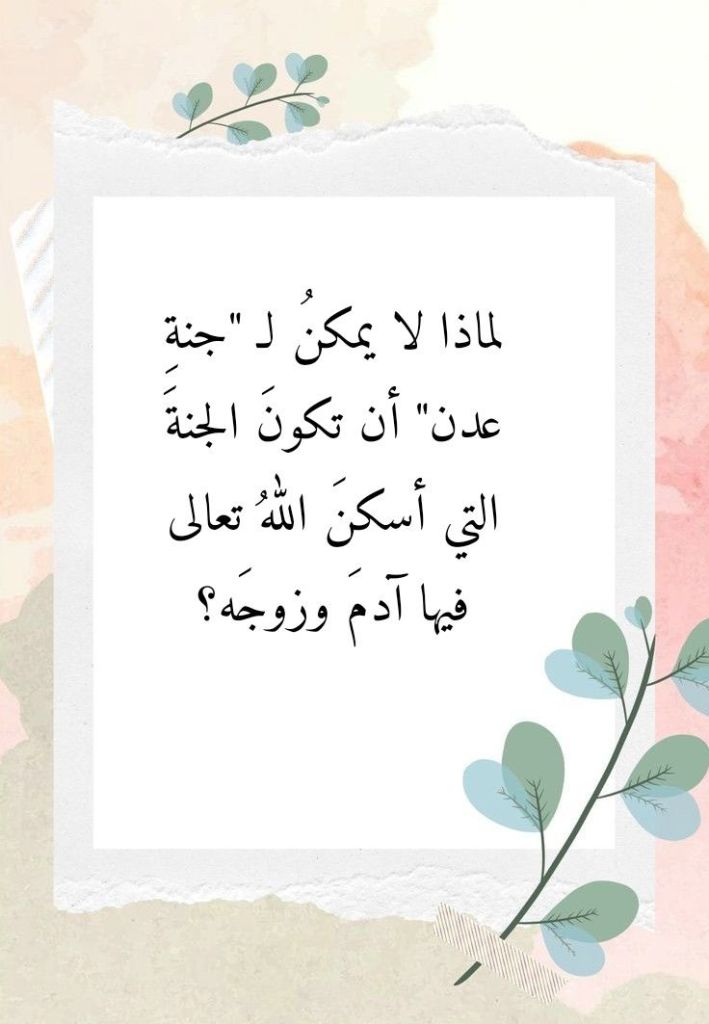 لماذا لا يمكنُ لـ "جنةِ
عدن" أن تكونَ الجنةَ
التي أسكنَ اللهُ تعالى
فيها آدمَ وزوجَه؟